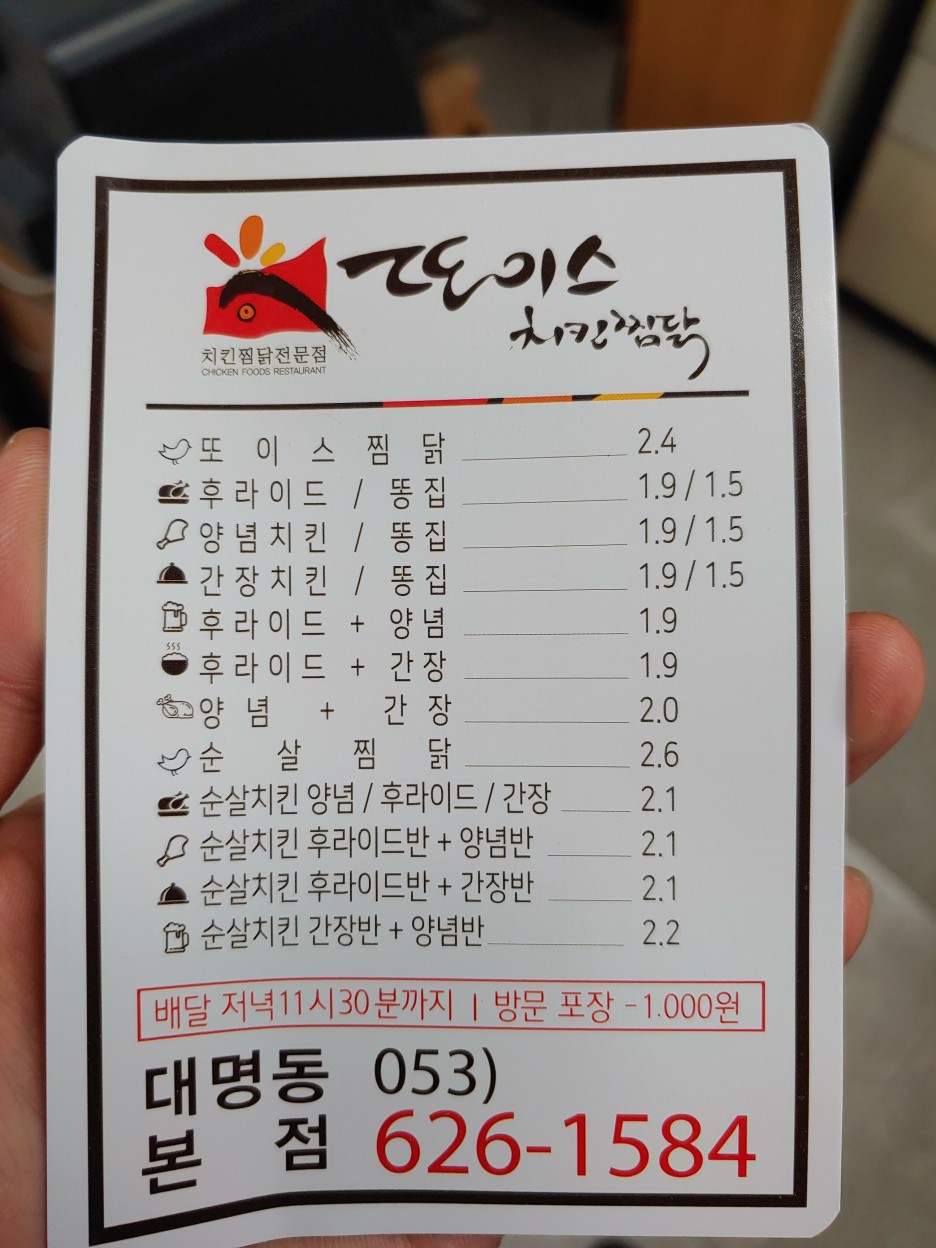 또이스
치킨찜닭
치킨찜닭전문점
CHICKEN FOODS RESTAURANT
또 이 스 찜 닭 2.4
후라이드 / 똥집 1.9 / 1.5
양념치킨 / 똥집 1.9 / 1.5
간장치킨 / 똥집 1.9 / 1.5
후라이드 + 양념 1.9
후라이드 + 간장 1.9
양념 + 간장 2.0
순 살 찜 닭 2.6
순살치킨 양념 / 후라이드 / 간장 2.1
순살치킨 후라이드반 + 양념반 2.1
순살치킨 후라이드반 + 간장반 2.1
순살치킨 간장반 + 양념반 2.2
배달 저녁11시30분까지 | 방문 포장 -1.000원
대명동 053)
본점 626-1584